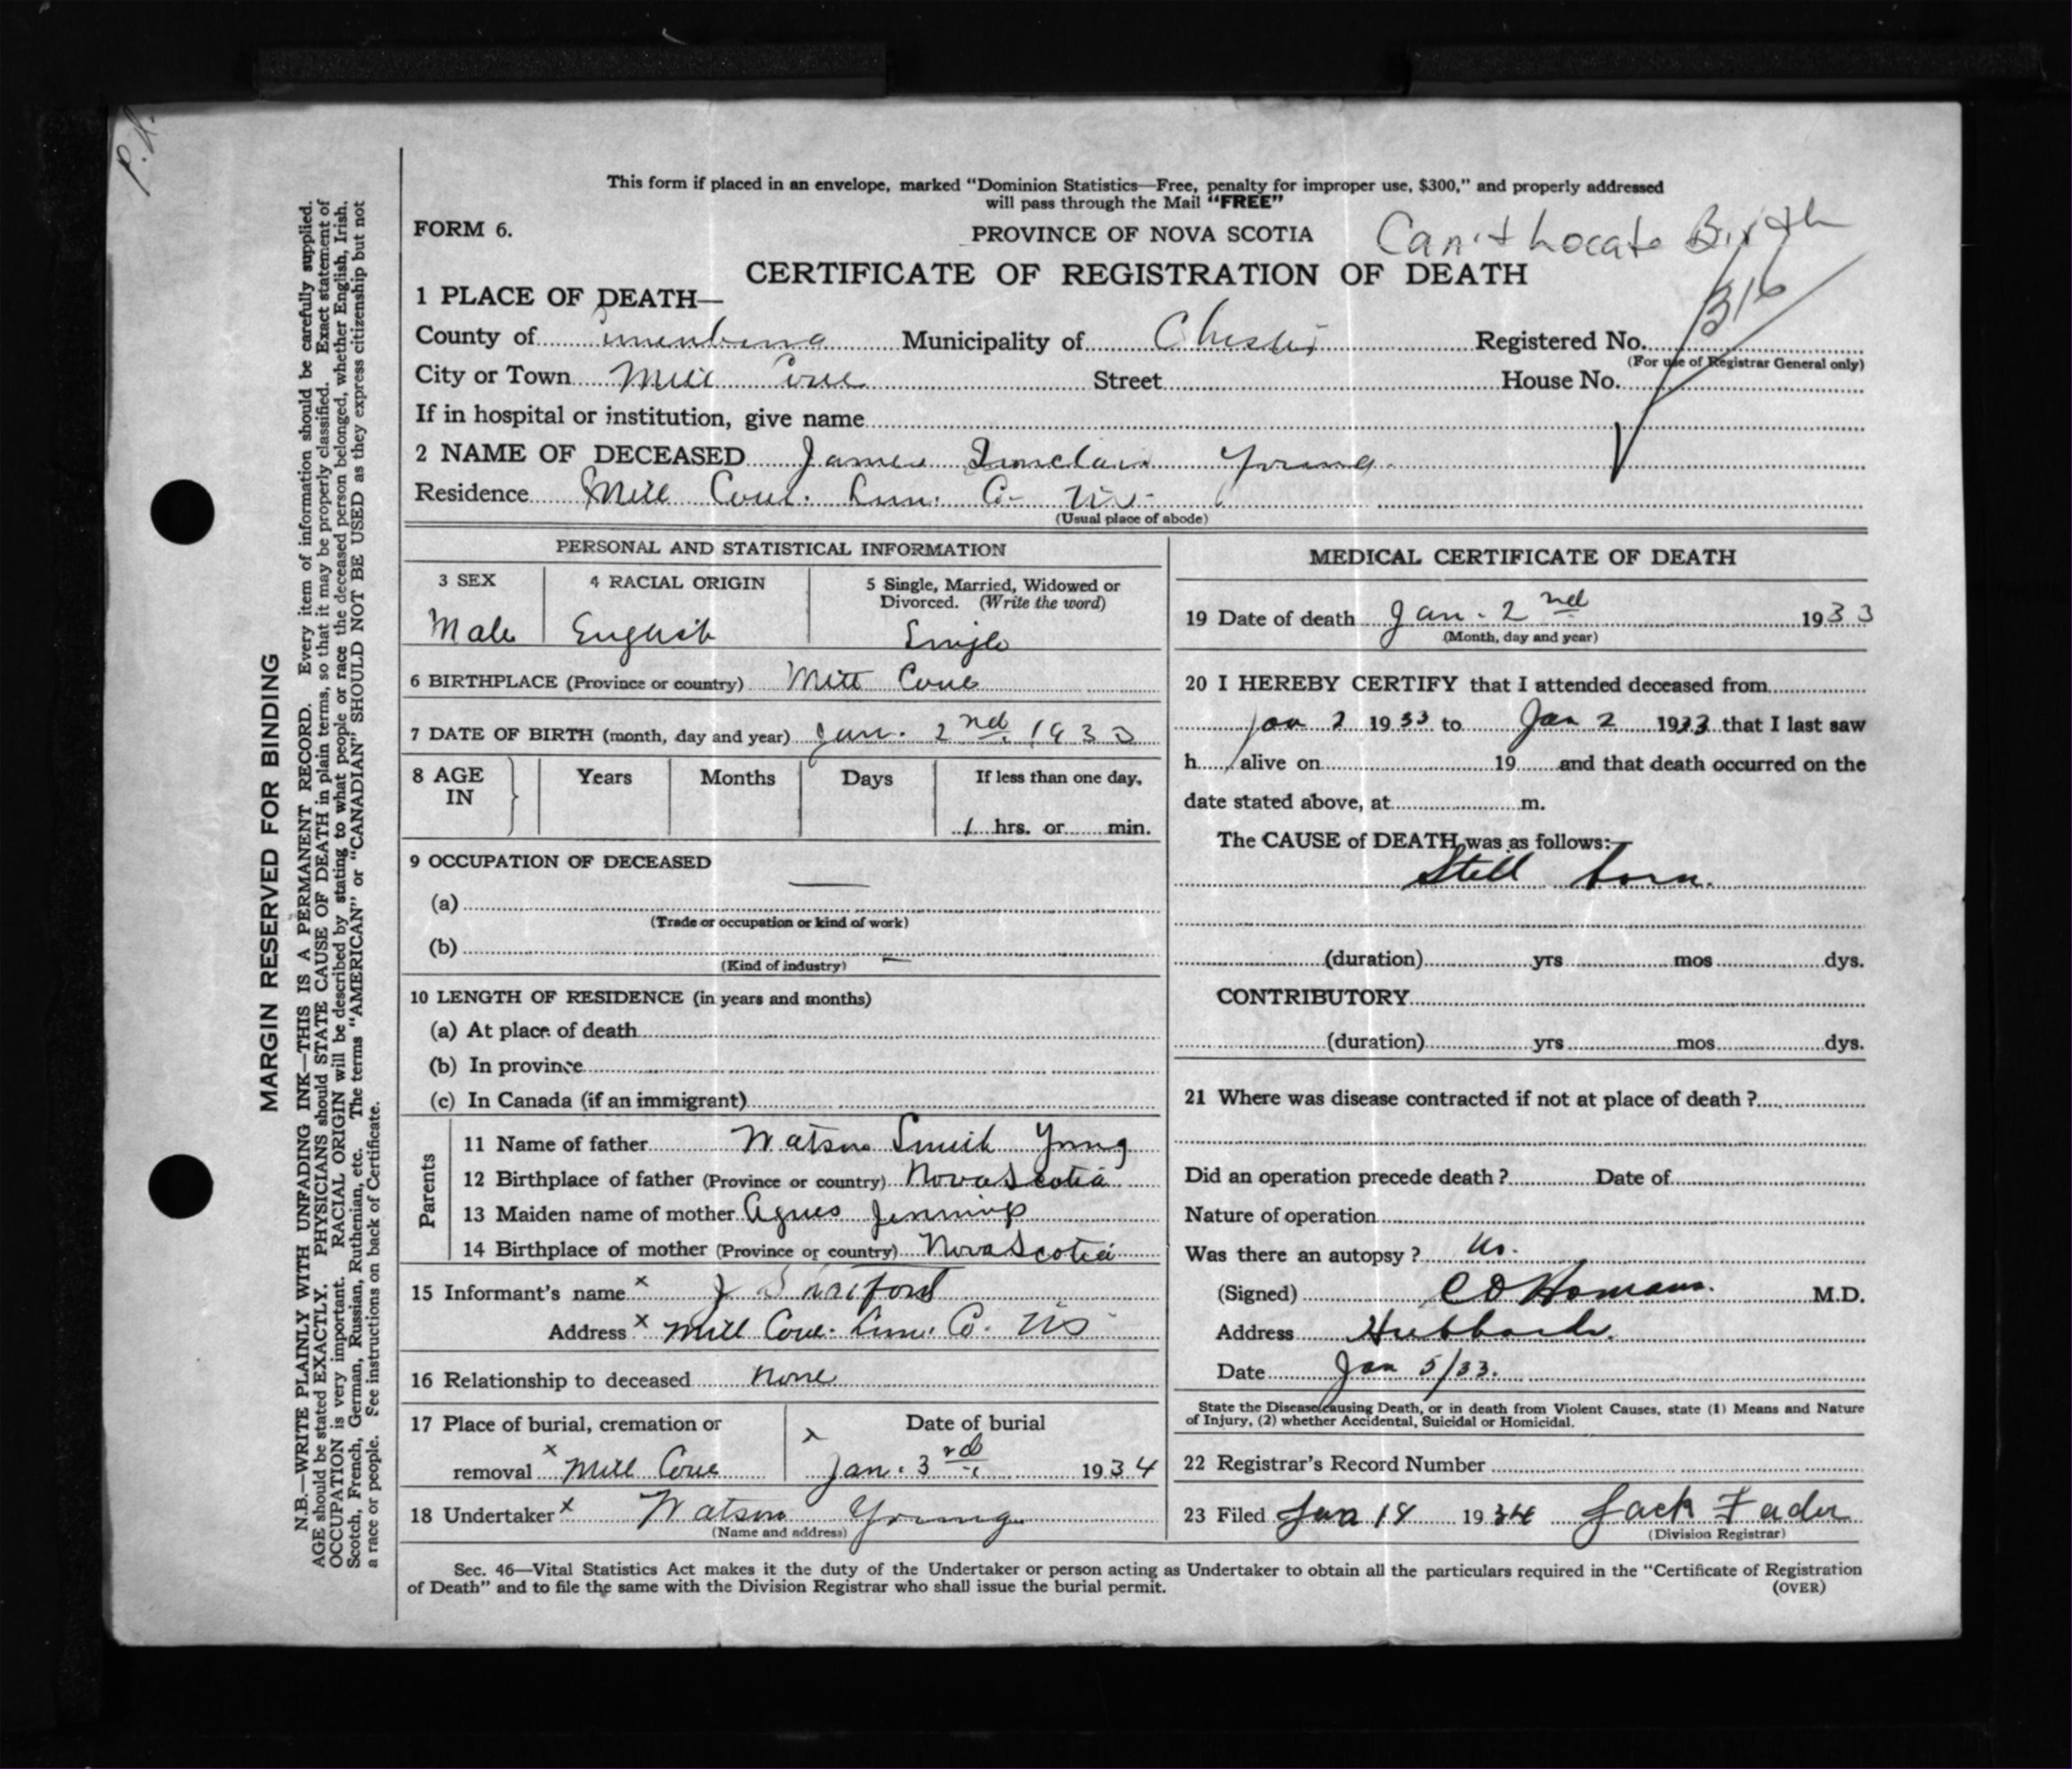 P.S.
This form if placed in an envelope, marked “Dominion Statistics—Free, penalty for improper use, $300,” and properly addressed
will pass through the Mail “FREE”
FORM 6.
PROVINCE OF NOVA SCOTIA
Can't Locate Birth
CERTIFICATE OF REGISTRATION OF DEATH
316
1 PLACE OF DEATH—
County of Lunenburg Municipality of Chester Registered No.
(For use of Registrar General only)
City or Town Mill Cove Street House No.
If in hospital or institution, give name
2 NAME OF DECEASED James Sinclair Young
Residence Mill Cove. Lun. Co. N.S.
(Usual place of abode)
PERSONAL AND STATISTICAL INFORMATION
3 SEX 4 RACIAL ORIGIN 5 Single, Married, Widowed or
Divorced. (Write the word)
Male English Single
6 BIRTHPLACE (Province or country) Mill Cove
7 DATE OF BIRTH (month, day and year) Jan. 2nd. 1933
8 AGE IN Years Months Days If less than one day,
1 hrs. or min.
9 OCCUPATION OF DECEASED
(a)
(Trade or occupation or kind of work)
(b)
(Kind of industry)
10 LENGTH OF RESIDENCE (in years and months)
(a) At place of death
(b) In province
(c) In Canada (if an immigrant)
Parents
11 Name of father Watson Smith Young
12 Birthplace of father (Province or country) Nova Scotia
13 Maiden name of mother Agnes Jennings
14 Birthplace of mother (Province or country) Nova Scotia
15 Informant's name x J
Address x Mill Cove. Lun. Co. NS
16 Relationship to deceased None
17 Place of burial, cremation or
removal x Mill Cove
x Date of burial
Jan. 3rd 1934
18 Undertaker x Watson Young
(Name and address)
MEDICAL CERTIFICATE OF DEATH
19 Date of death Jan. 2nd 1933
(Month, day and year)
20 I HEREBY CERTIFY that I attended deceased from
Jan 2 1933 to Jan 2 1933 that I last saw
h alive on 19 and that death occurred on the
date stated above, at m.
The CAUSE of DEATH was as follows:
Still born.
(duration) yrs mos dys.
CONTRIBUTORY
(duration) yrs mos dys.
21 Where was disease contracted if not at place of death ?
Did an operation precede death ? Date of
Nature of operation
Was there an autopsy ? No.
(Signed) C D Homans. M.D.
Address Hubbards.
Date Jan 5/33.
State the Disease causing Death, or in death from Violent Causes, state (1) Means and Nature
of Injury, (2) whether Accidental, Suicidal or Homicidal.
22 Registrar's Record Number
23 Filed Jan 18 1934 Jack Fader
(Division Registrar)
Sec. 46—Vital Statistics Act makes it the duty of the Undertaker or person acting as Undertaker to obtain all the particulars required in the “Certificate of Registration
of Death” and to file the same with the Division Registrar who shall issue the burial permit.
(OVER)
MARGIN RESERVED FOR BINDING
N.B.—WRITE PLAINLY WITH UNFADING INK—THIS IS A PERMANENT RECORD. Every item of information should be carefully supplied.
AGE should be stated EXACTLY. PHYSICIANS should STATE CAUSE OF DEATH in plain terms, so that it may be properly classified. Exact statement of
OCCUPATION is very important. RACIAL ORIGIN will be described by stating to what people or race the deceased person belonged, whether English, Irish,
Scotch, French, German, Russian, Ruthenian, etc. The terms “AMERICAN” or “CANADIAN” SHOULD NOT BE USED as they express citizenship but not
a race or people. See instructions on back of Certificate.